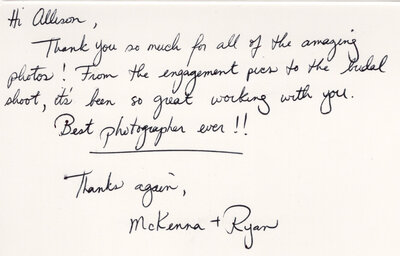 Hi Allison,
Thank you so much for all of the amazing
photos! From the engagement pics to the bridal
shoot, it's been so great working with you.
Best photographer ever!!
Thanks again,
McKenna + Ryan